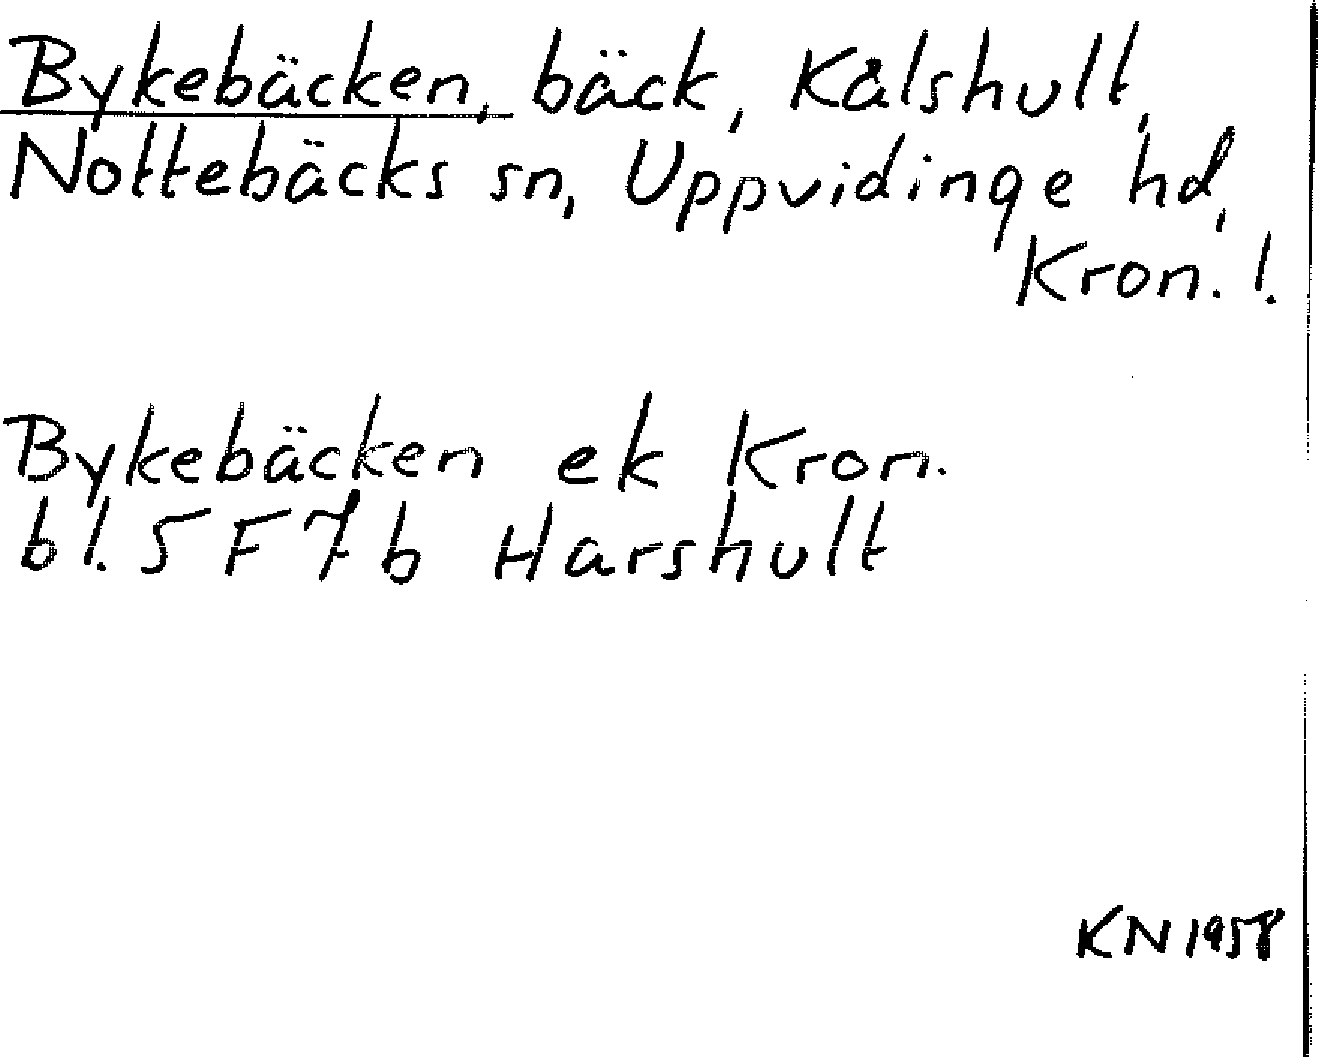 Bykebäcken, bäck, Kålshult,
Nottebäcks sn, Uppvidinge hd,
Kron. l.
Bykebäcken ek Kron.
bl. 5 F 7 b Harshult
KN 1958